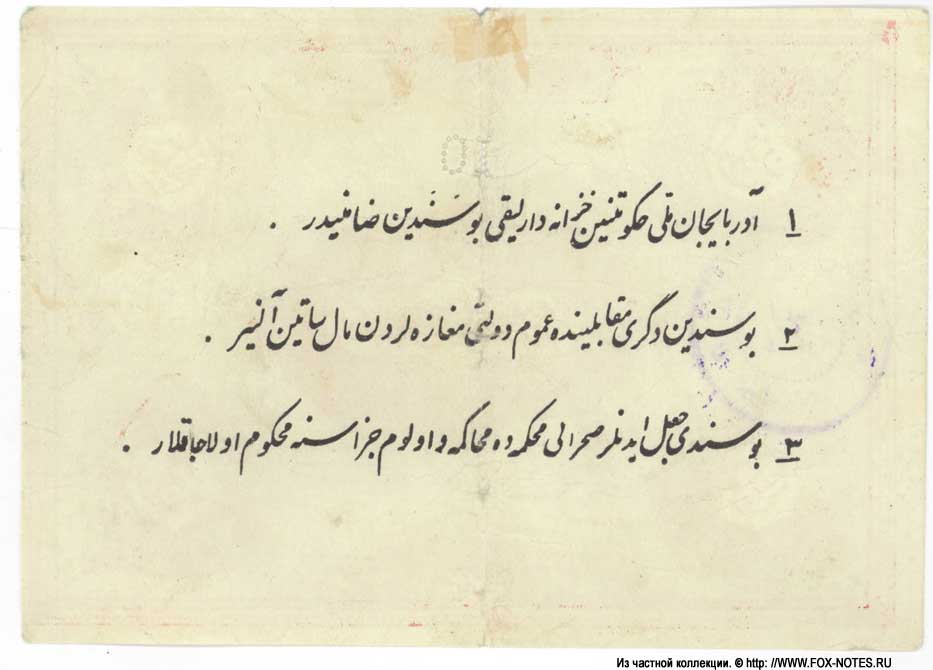 ١ آذربایجان ملی حکومتینین خزانه داریلیقی بو سَنَدین ضامنیدر .
٢ بو سندین دگری مقابلینده عموم دولتی مغازه لردن مال ساتین آلنیر .
٣ بو سندی جعل ایدنلر صحرائی محکمه ده محاکمه و اولوم جزاسنه محکوم اولاجاقلار .
Из частной коллекции. © http: //WWW.FOX-NOTES.RU